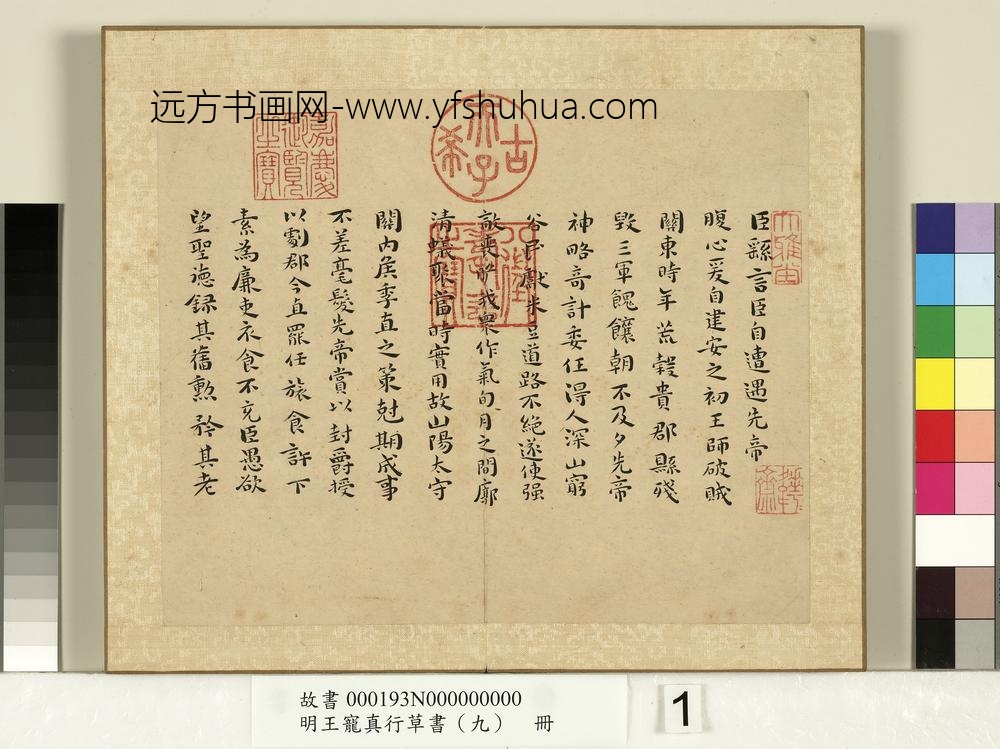 远方书画网-www.yfshuhua.com
嘉慶御覽之寶
古希天子
臣繇言臣自遭遇先帝
腹心爰自建安之初王師破賊
關東時年荒穀貴郡縣殘
毀三軍餽饟朝不及夕先帝
神略奇計委任得人深山窮
谷民獻米豆道路不絕遂使强
敵喪膽我衆作氣旬月之間廓
清蟻聚當時實用故山陽太守
關內侯季直之策尅期成事
不差毫髮先帝賞以封爵授
以劇郡今直罷任旅食許下
素為廉吏衣食不充臣愚欲
望聖德録其舊勲矜其老
故書 000193N000000000
明王寵真行草書（九） 冊
1